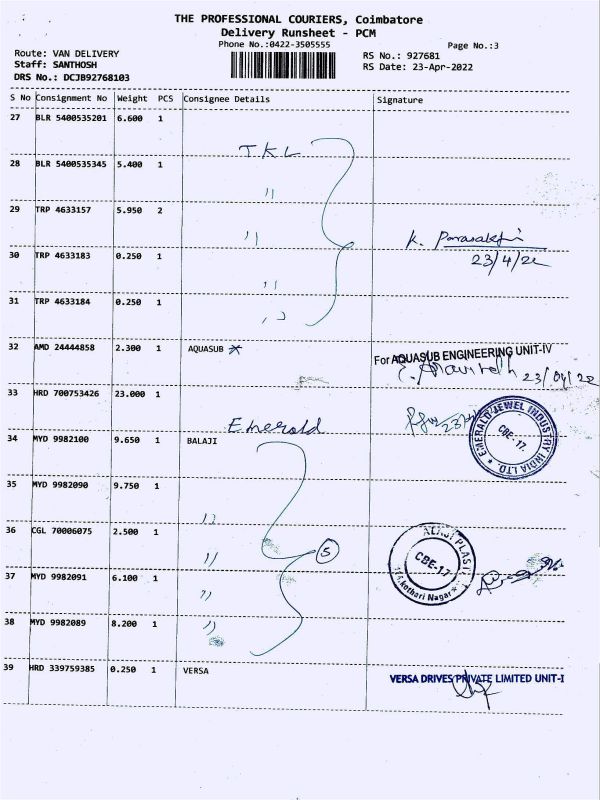 THE PROFESSIONAL COURIERS, Coimbatore
Delivery Runsheet - PCM
Phone No.:0422-3505555
Page No.:3
Route: VAN DELIVERY
Staff: SANTHOSH
DRS No.: DCJB92768103
RS No.: 927681
RS Date: 23-Apr-2022
S No Consignment No Weight PCS Consignee Details Signature
27 BLR 5400535201 6.600 1
TKL
28 BLR 5400535345 5.400 1
"
29 TRP 4633157 5.950 2
"
K.
23/4/22
30 TRP 4633183 0.250 1
"
31 TRP 4633184 0.250 1
"
32 AMD 24444858 2.300 1 AQUASUB
For AQUASUB ENGINEERING UNIT-IV
23/04/22
33 HRD 700753426 23.000 1
Emerald
EMERALD JEWEL INDUSTRY INDIA LTD. * CBE-17.
34 MYD 9982100 9.650 1 BALAJI
35 MYD 9982090 9.750 1
"
36 CGL 70006075 2.500 1
"
5
CBE-17
Kothari Nagar
37 MYD 9982091 6.100 1
"
38 MYD 9982089 8.200 1
"
39 HRD 339759385 0.250 1 VERSA
VERSA DRIVES PRIVATE LIMITED UNIT-I